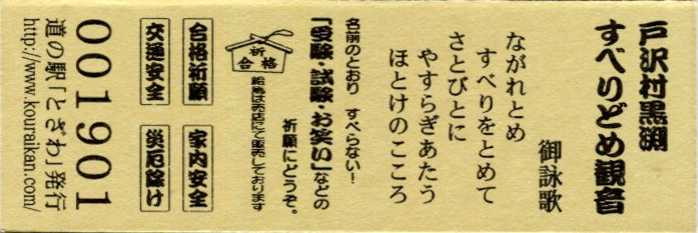 戸沢村黒渕
すべりどめ観音
御詠歌
ながれとめ
すべりをとめて
さとびとに
やすらぎあたう
ほとけのこころ
名前のとおり すべらない！
「受験・試験・お笑い」などの
祈願にどうぞ。
祈
合格
絵馬は売店にて販売しております
合格祈願
家内安全
交通安全
災厄除け
001901
道の駅「とざわ」発行
http://www.kouraikan.com/